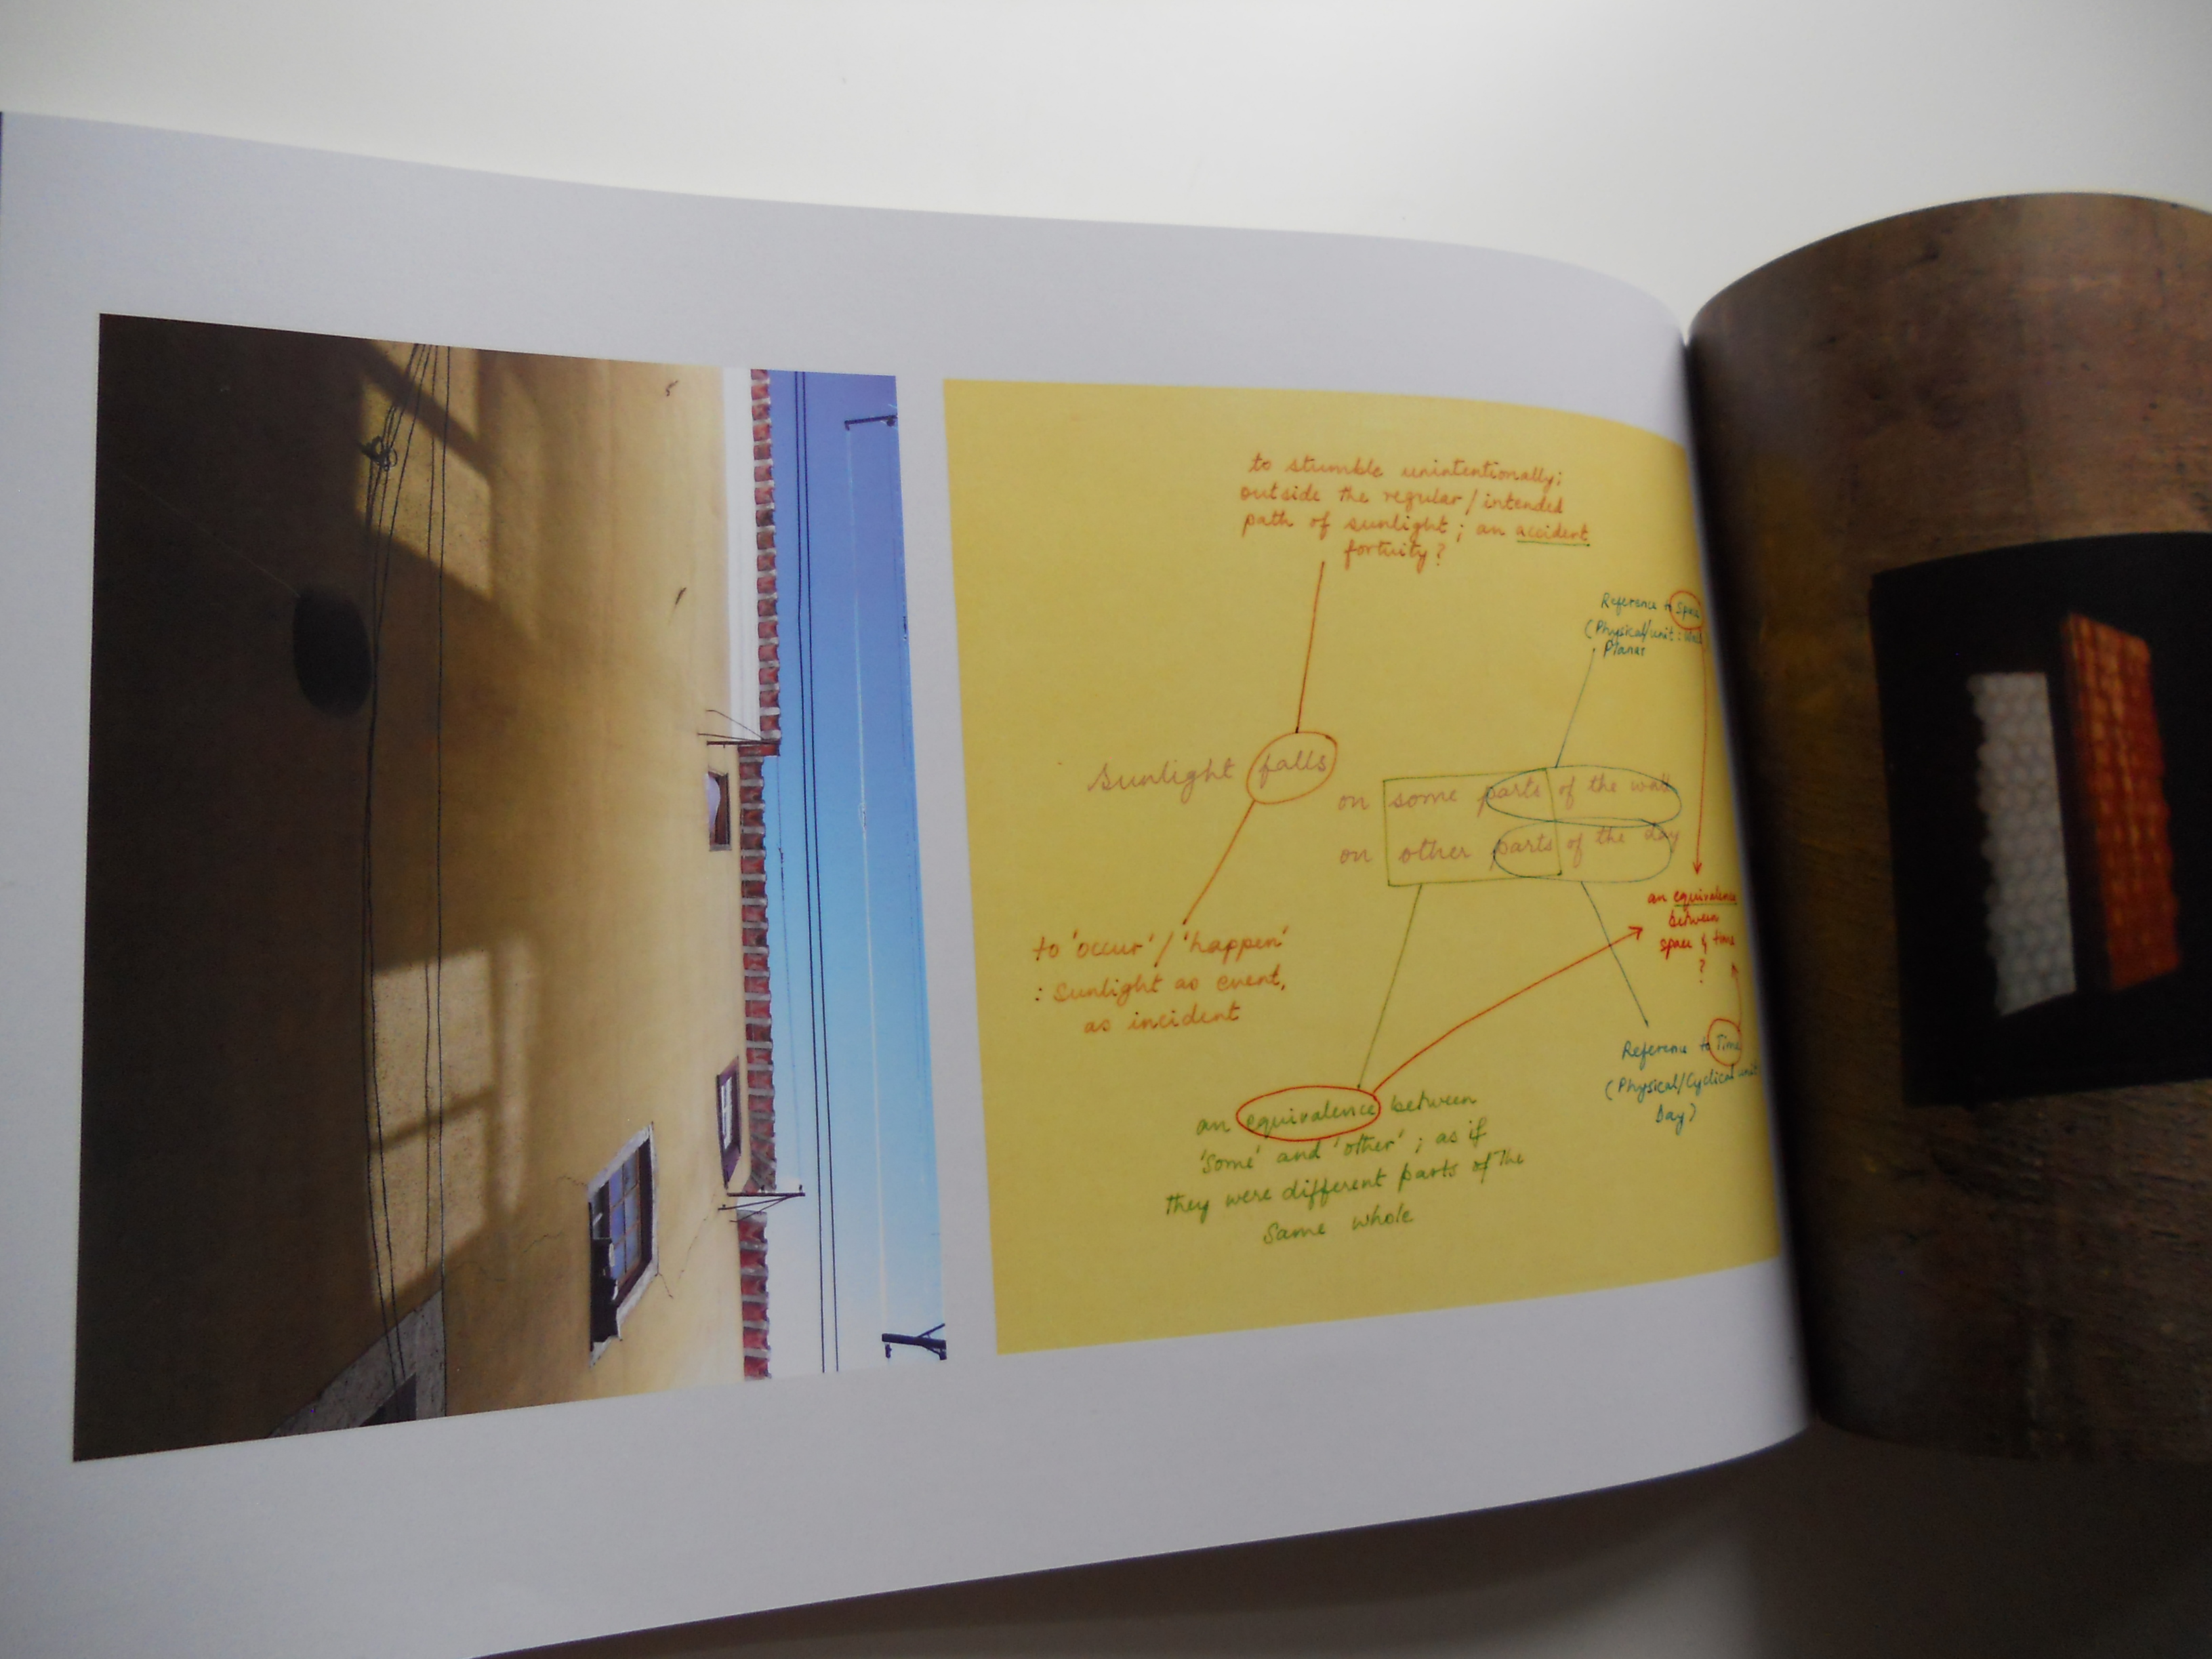 to stumble unintentionally;
outside the regular/intended
path of sunlight; an accident
fortuity?
Reference to Space
(Physical/unit:
Planar
Sunlight falls
on some parts of the wall
on other parts of the day
an equivalence
between
space & time
?
to 'occur' / 'happen'
: Sunlight as event,
as incident
Reference to Time
(Physical/Cyclical unit
Day)
an equivalence between
'some' and 'other'; as if
they were different parts of the
Same whole